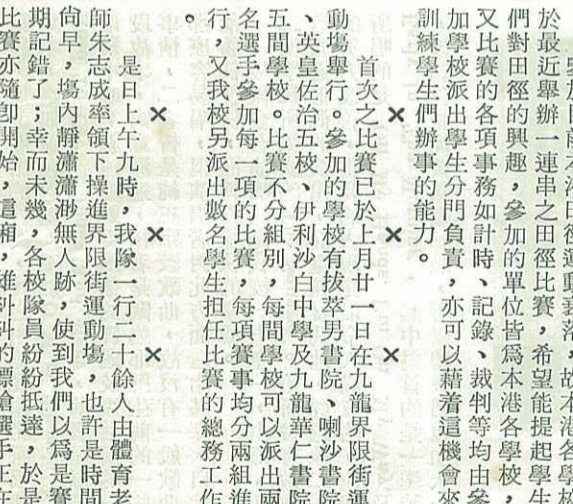 於目前本港田徑運動衰落，故本港各學校
於最近舉辦一連串之田徑比賽，希望能提起學
們對田徑的興趣，參加的單位皆爲本港各學校
又比賽的各項事務如計時、記錄、裁判等均由參
加學校派出學生分門負責，亦可以藉着這機會來
訓練學生們辦事的能力。
× × ×
首次之比賽已於上月廿一日在九龍界限街運
動塲舉行。參加的學校有拔萃男書院、喇沙書院
、英皇佐治五校、伊利沙白中學及九龍華仁書院
五間學校。比賽不分組別，每間學校可以派出兩
名選手參加每一項的比賽，每項賽事均分兩組進
行，又我校另派出數名學生担任比賽的總務工作
。
× × ×
是日上午九時，我隊一行二十餘人由體育老
師朱志成率領下操進界限街運動塲，也許是時間
尚早，塲內靜瀟瀟渺無人跡，使到我們以爲是賽
期記錯了；幸而未幾，各校隊員紛紛抵達，於是
比賽亦隨卽開始，這廂，雄糾糾的標槍選手正在